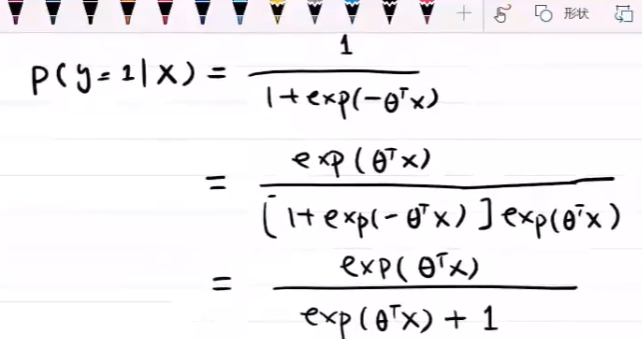 形状
P(y=1|X) = 1 / (1+exp(-θᵀx))
= exp(θᵀx) / ([1+exp(-θᵀx)]exp(θᵀx))
= exp(θᵀx) / (exp(θᵀx)+1)